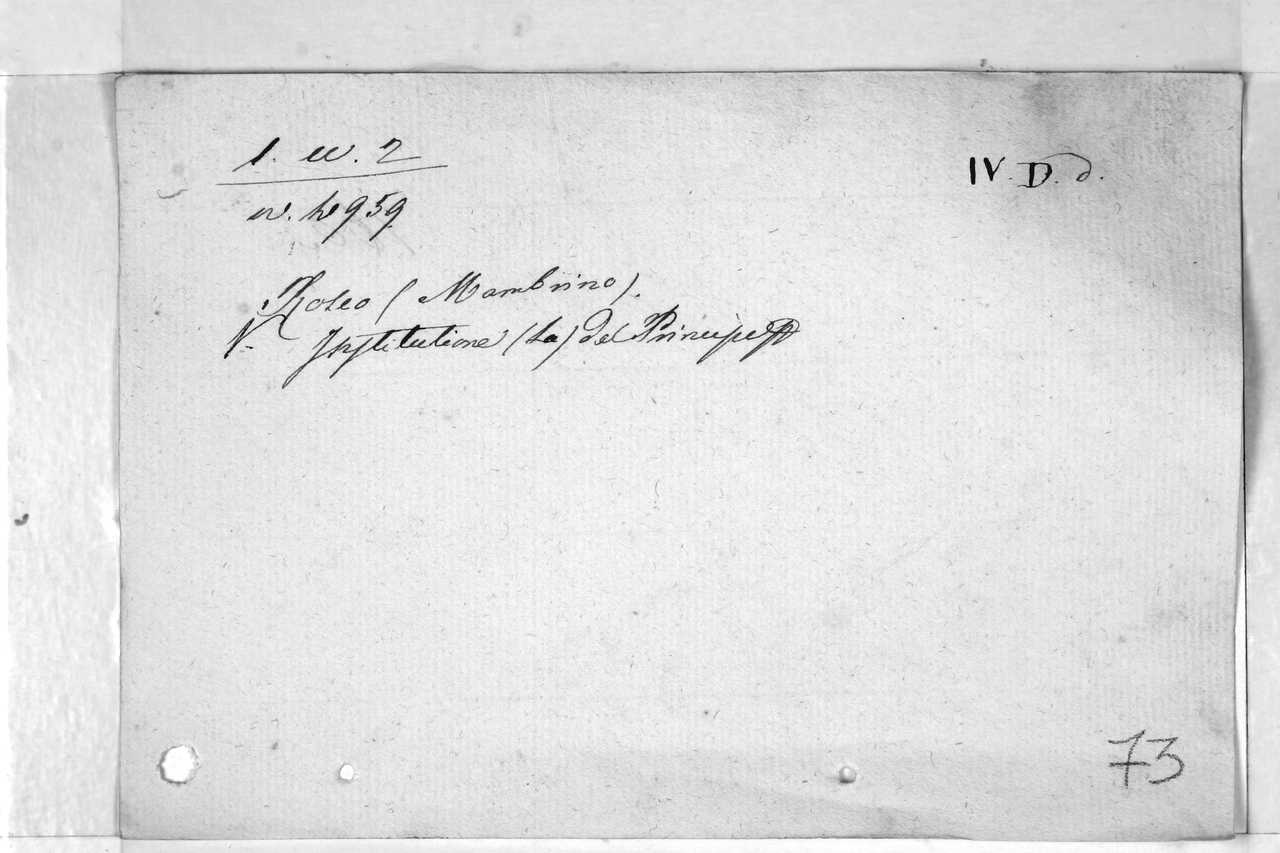 1. w. 2
IV. D. d.
Roseo (Mambrino).
V. Institutione (La) del Principe
73